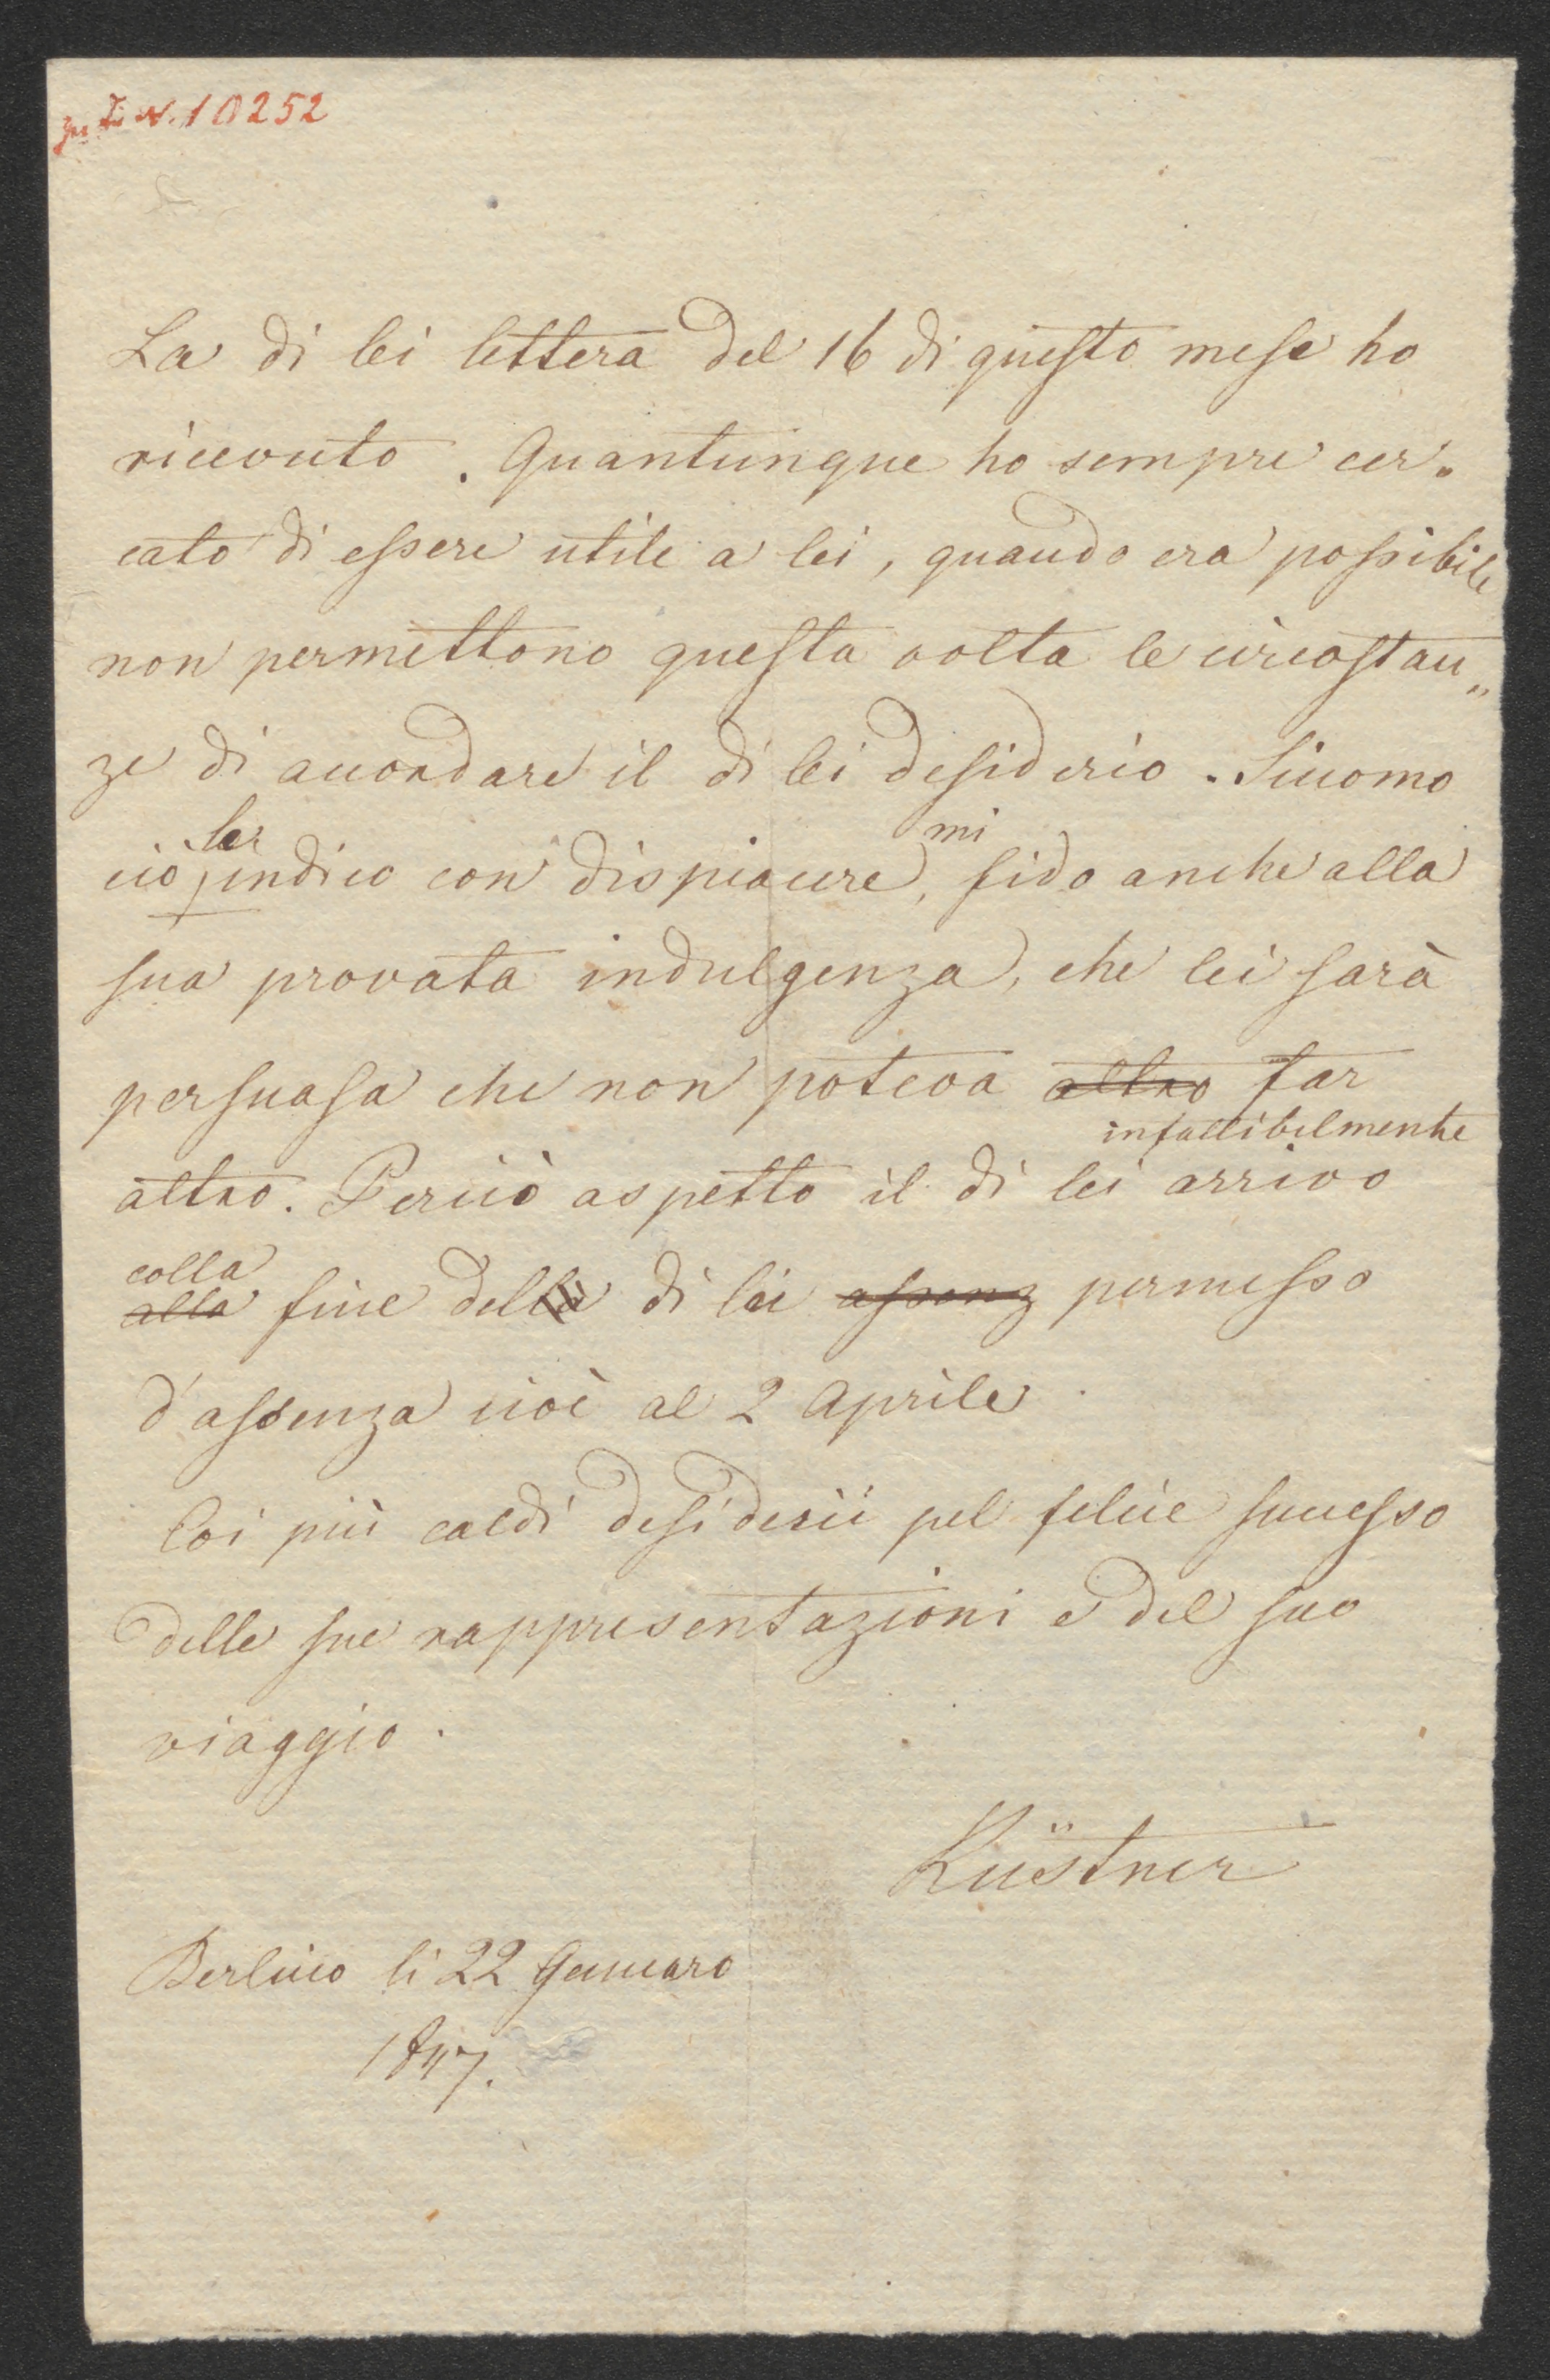 zu I. N. 10252
La di lei lettera del 16 di questo mese ho
ricevuto. Quantunque ho sempre cer-
cato di essere utile a lei, quando era possibile
non permettono questa volta le circostan„
ze di accordare il di lei desiderio. Siccomo
ler
ciò indico con dispiacere,
mi
fido anche alla
sua provata indulgenza, che lei sarà
persuasa che non poteva altro far
infallibilmente
altro. Perciò aspetto il di lei arrivo
colla
alla fine della di lei assenz permesso
d'assenza cioè al 2 Aprile.
Coi più caldi desiderii pel felice successo
delle sue rappresentazioni e del suo
viaggio.
Küstner
Berlino li 22 Gennaro
1847.